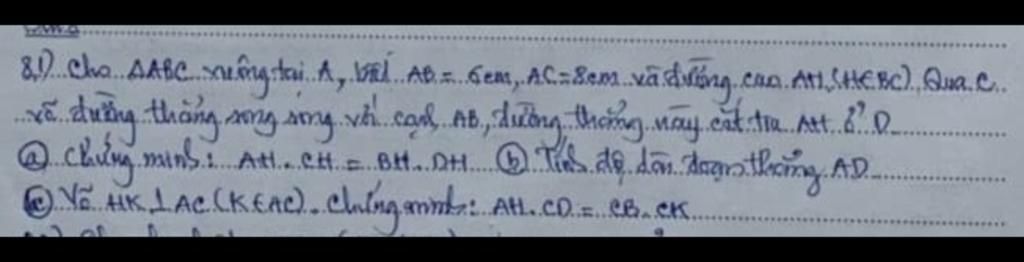 8.1) Cho ΔABC vuông tại A, biết AB = 6cm, AC = 8cm và đường cao AH (H∈BC). Qua C
vẽ đường thẳng song song với cạnh AB, đường thẳng này cắt tia AH ở D
ⓐ Chứng minh: AH. CH = BH. DH ⓑ Tính độ dài đoạn thẳng AD
ⓒ Vẽ HK ⊥ AC (K∈AC). Chứng minh: AH. CD = CB. CK